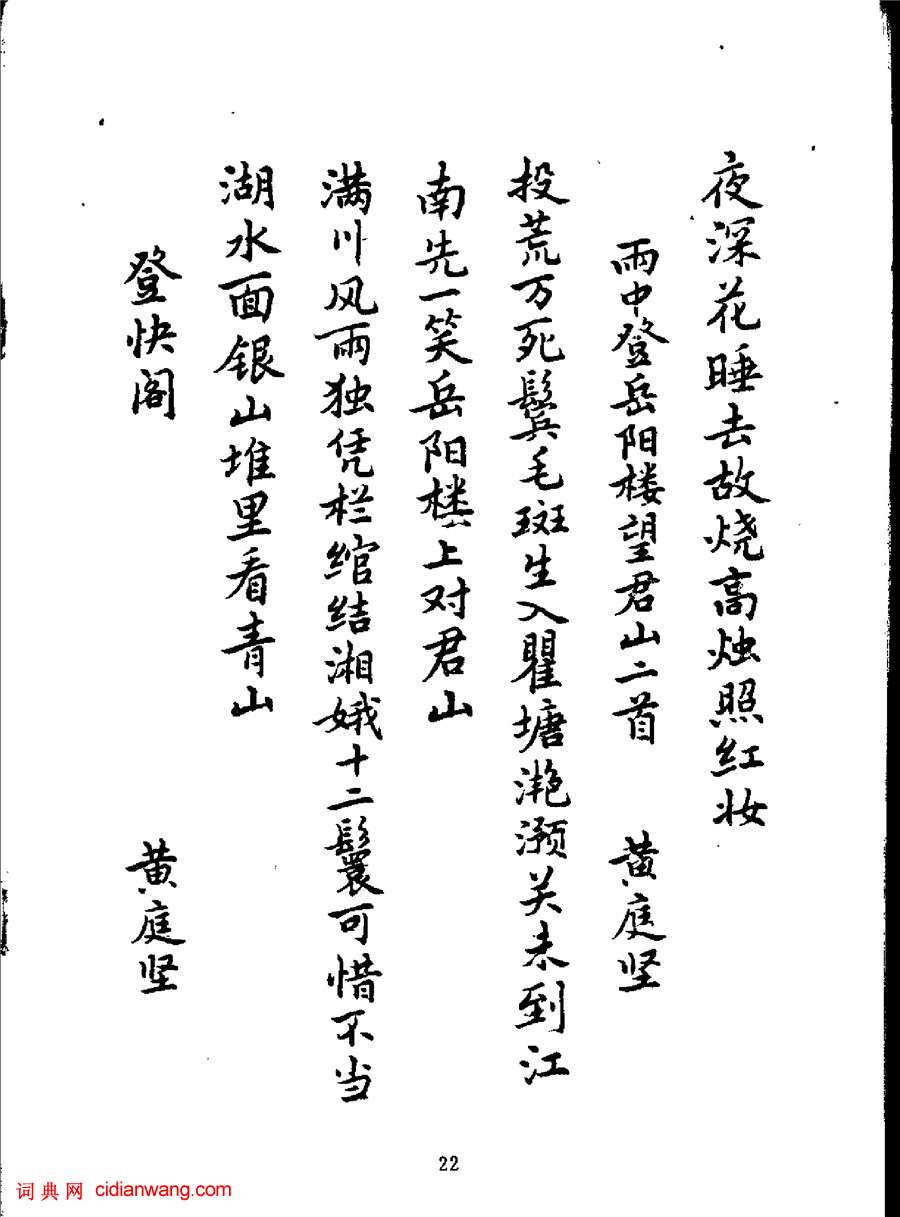 夜深花睡去故烧高烛照红妆
雨中登岳阳楼望君山二首 黄庭坚
投荒万死鬓毛斑生入瞿塘滟滪关未到江
南先一笑岳阳楼上对君山
满川风雨独凭栏绾结湘娥十二鬟可惜不当
湖水面银山堆里看青山
登快阁 黄庭坚
22
词典网 cidianwang.com